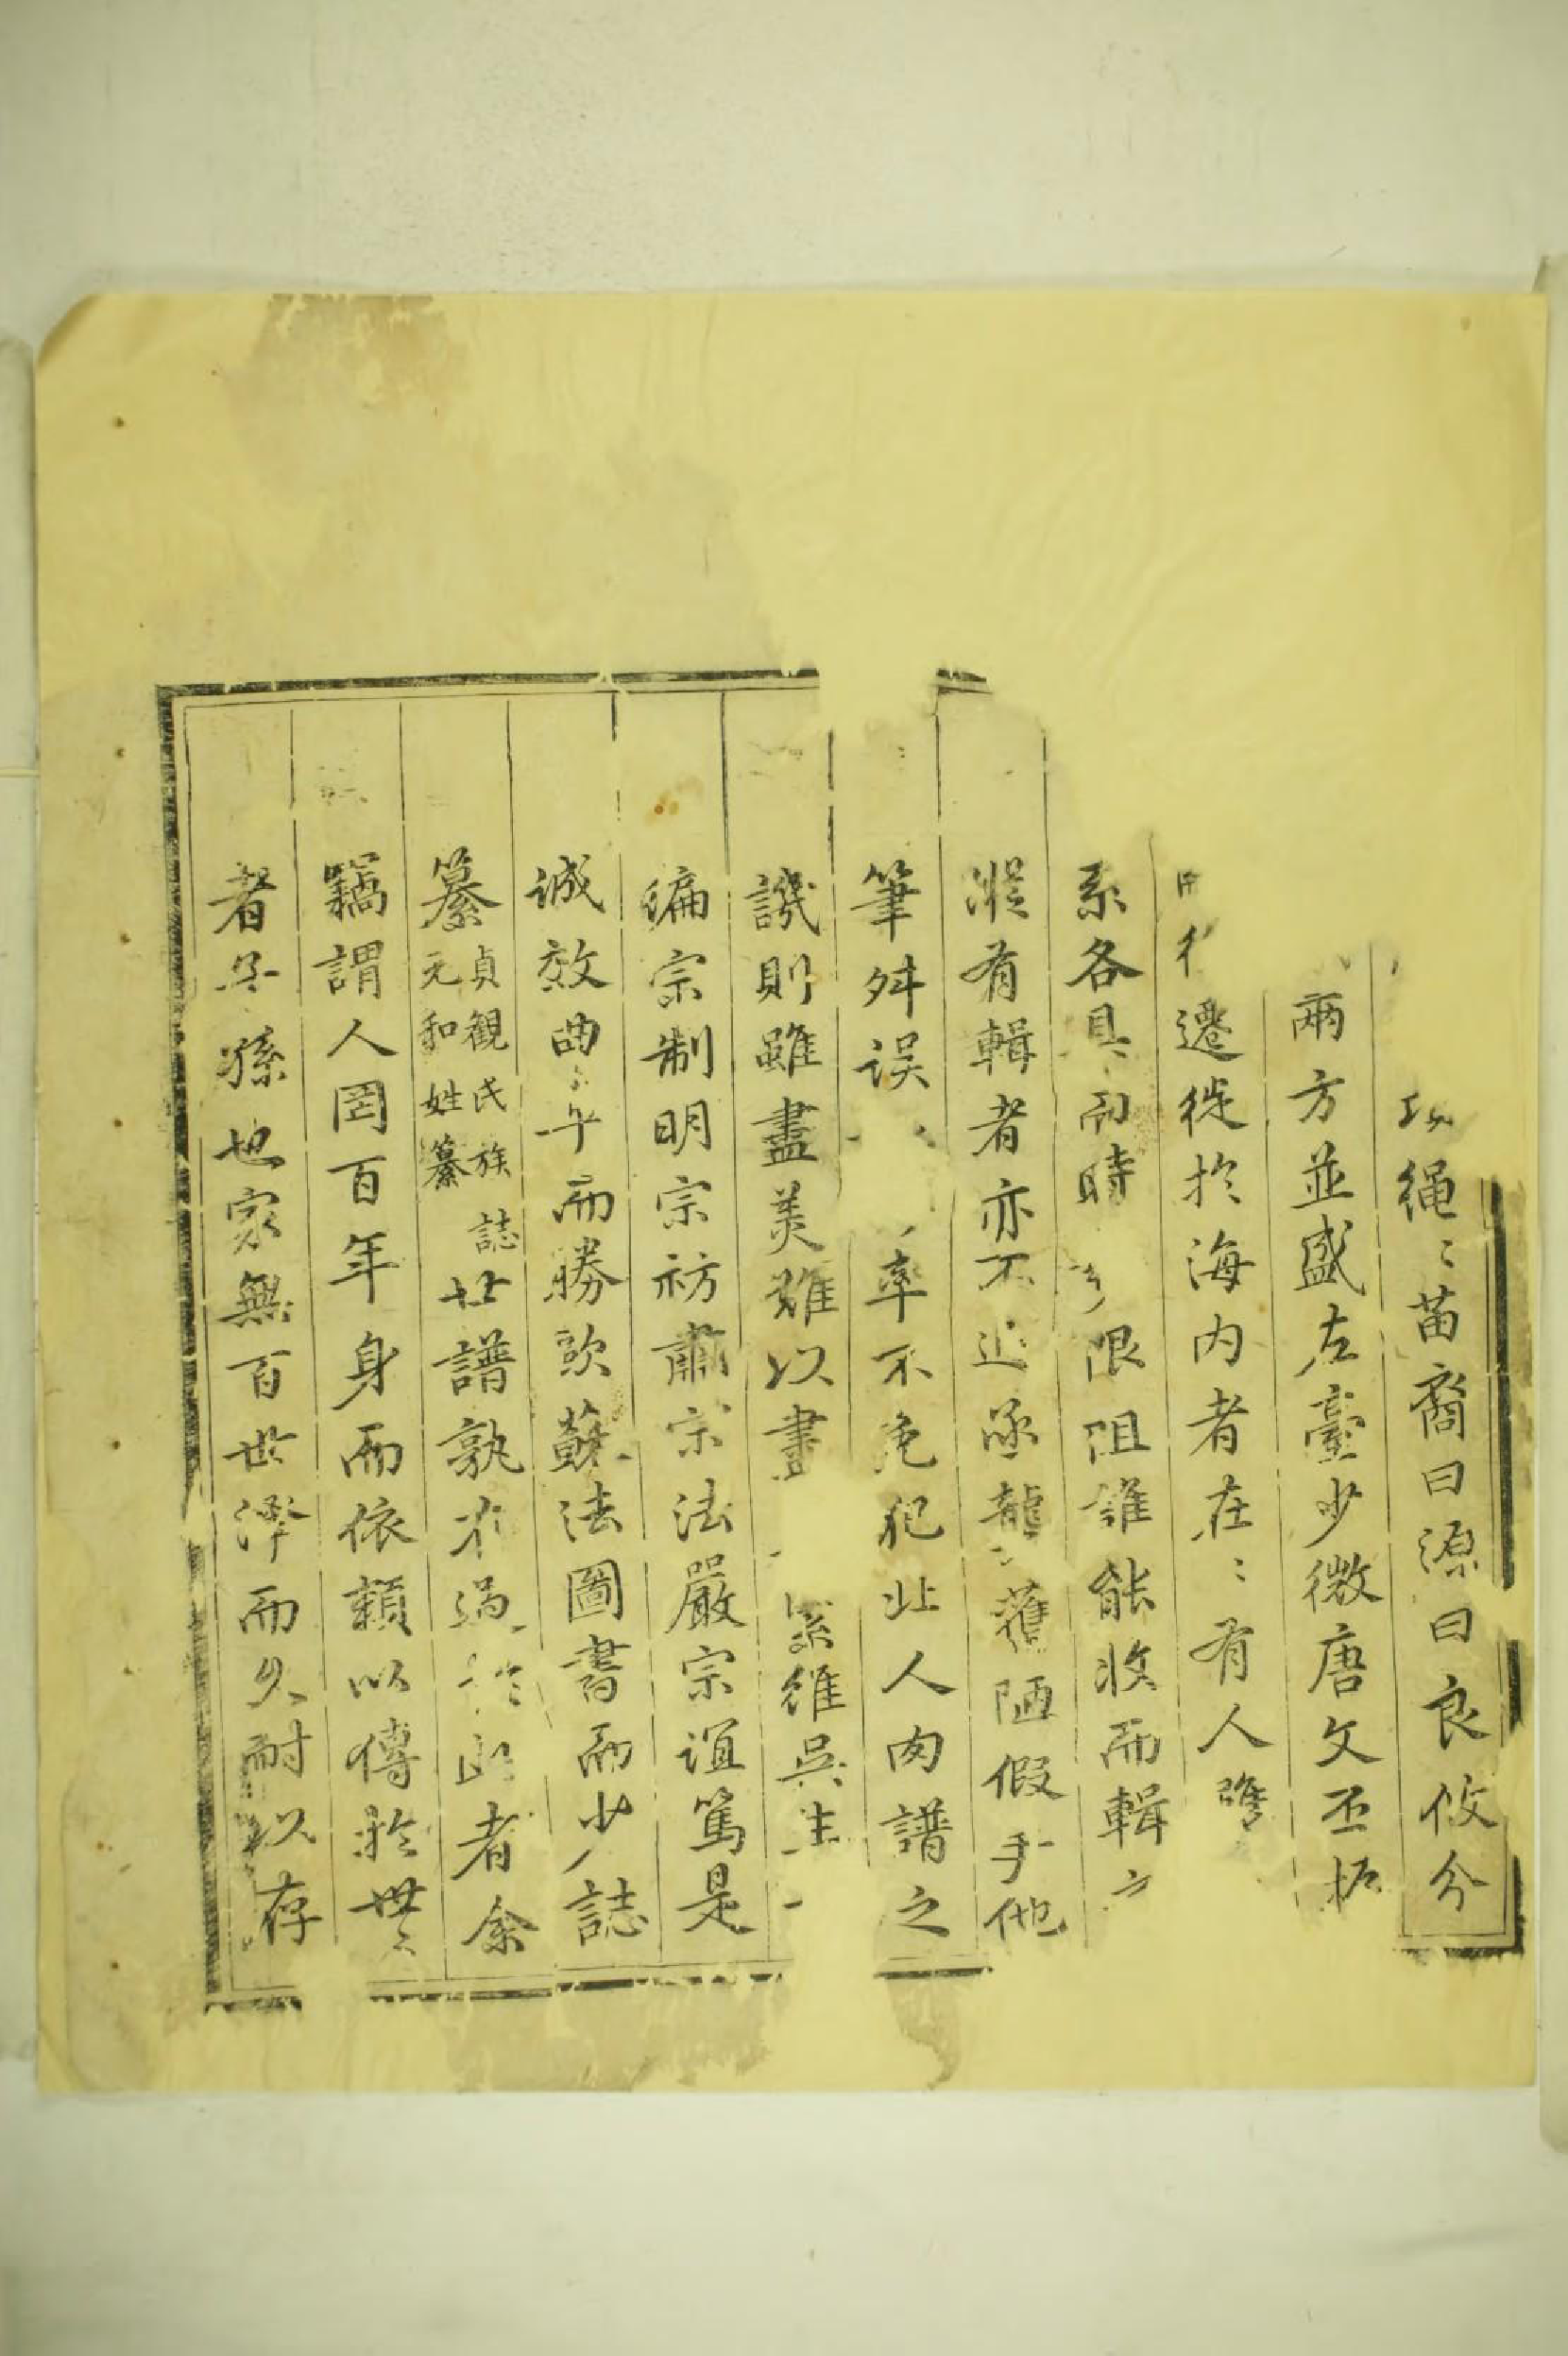 繩〻苗裔曰源曰良攸分
兩方並盛左臺少微唐文丕振
遷徙於海内者在〻有人
系各具而時限阻誰能收而輯
有輯者亦不獲陋假手他
筆舛误率不免犯北人肉譜之
譏則雖盡美難以書系維吳生
編宗制明宗祊肅宗法嚴宗誼篤是
誠效曲而勝歐蘇法圖書而少誌
纂貞觀氏族誌元和姓纂世譜孰有過於此者余
竊謂人罔百年身而依賴以傳於世
者子孫也家無百世澤而久耐以存